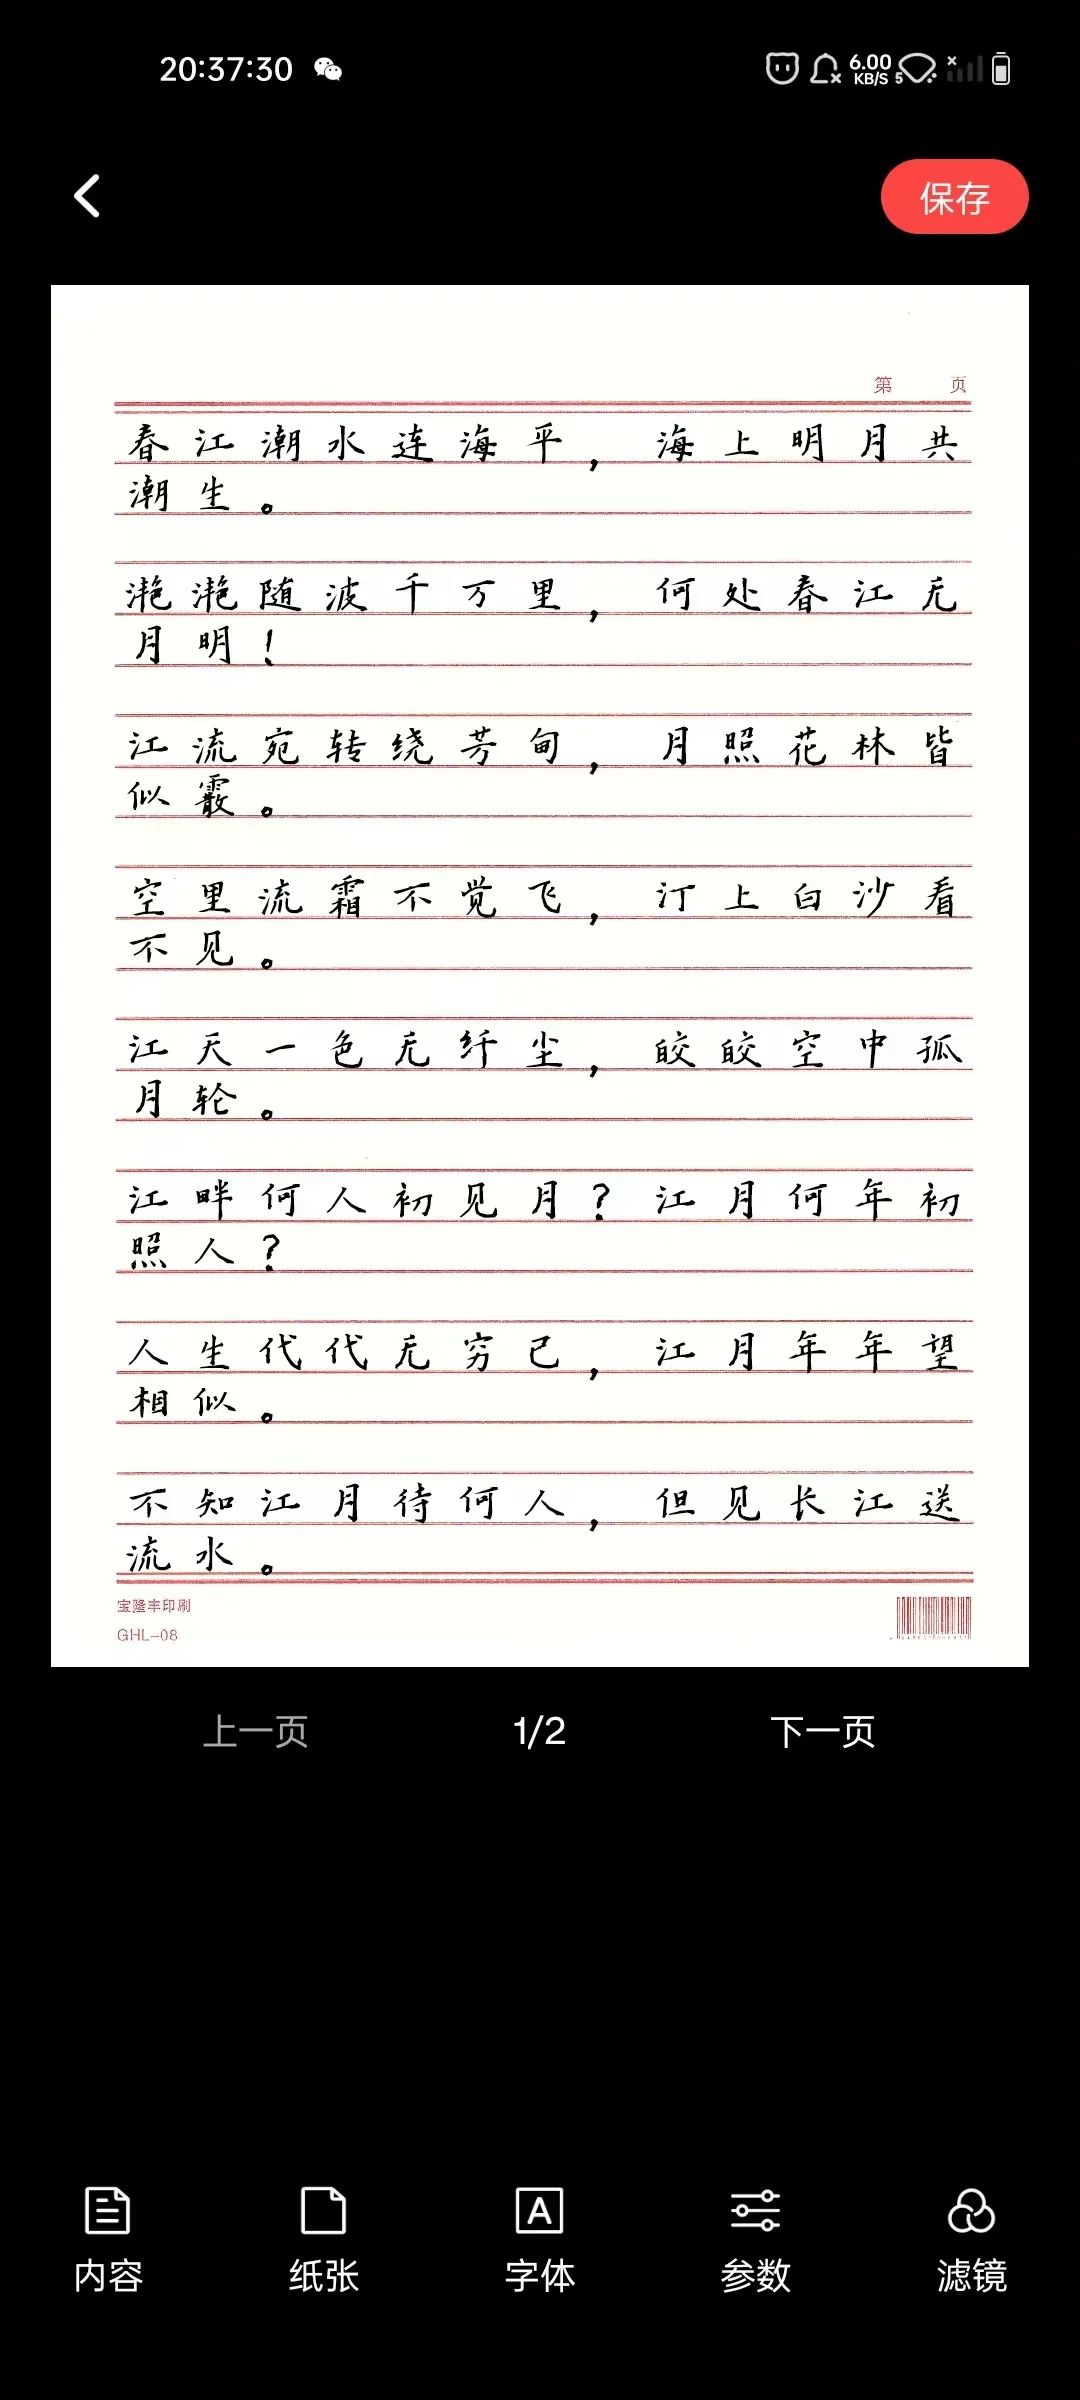 20:37:30
6.00
KB/S 5
保存
第 页
春江潮水连海平，海上明月共
潮生。
滟滟随波千万里，何处春江无
月明！
江流宛转绕芳甸，月照花林皆
似霰。
空里流霜不觉飞，汀上白沙看
不见。
江天一色无纤尘，皎皎空中孤
月轮。
江畔何人初见月？江月何年初
照人？
人生代代无穷已，江月年年望
相似。
不知江月待何人，但见长江送
流水。
宝隆丰印刷
GHL-08
上一页 1/2 下一页
内容 纸张 字体 参数 滤镜